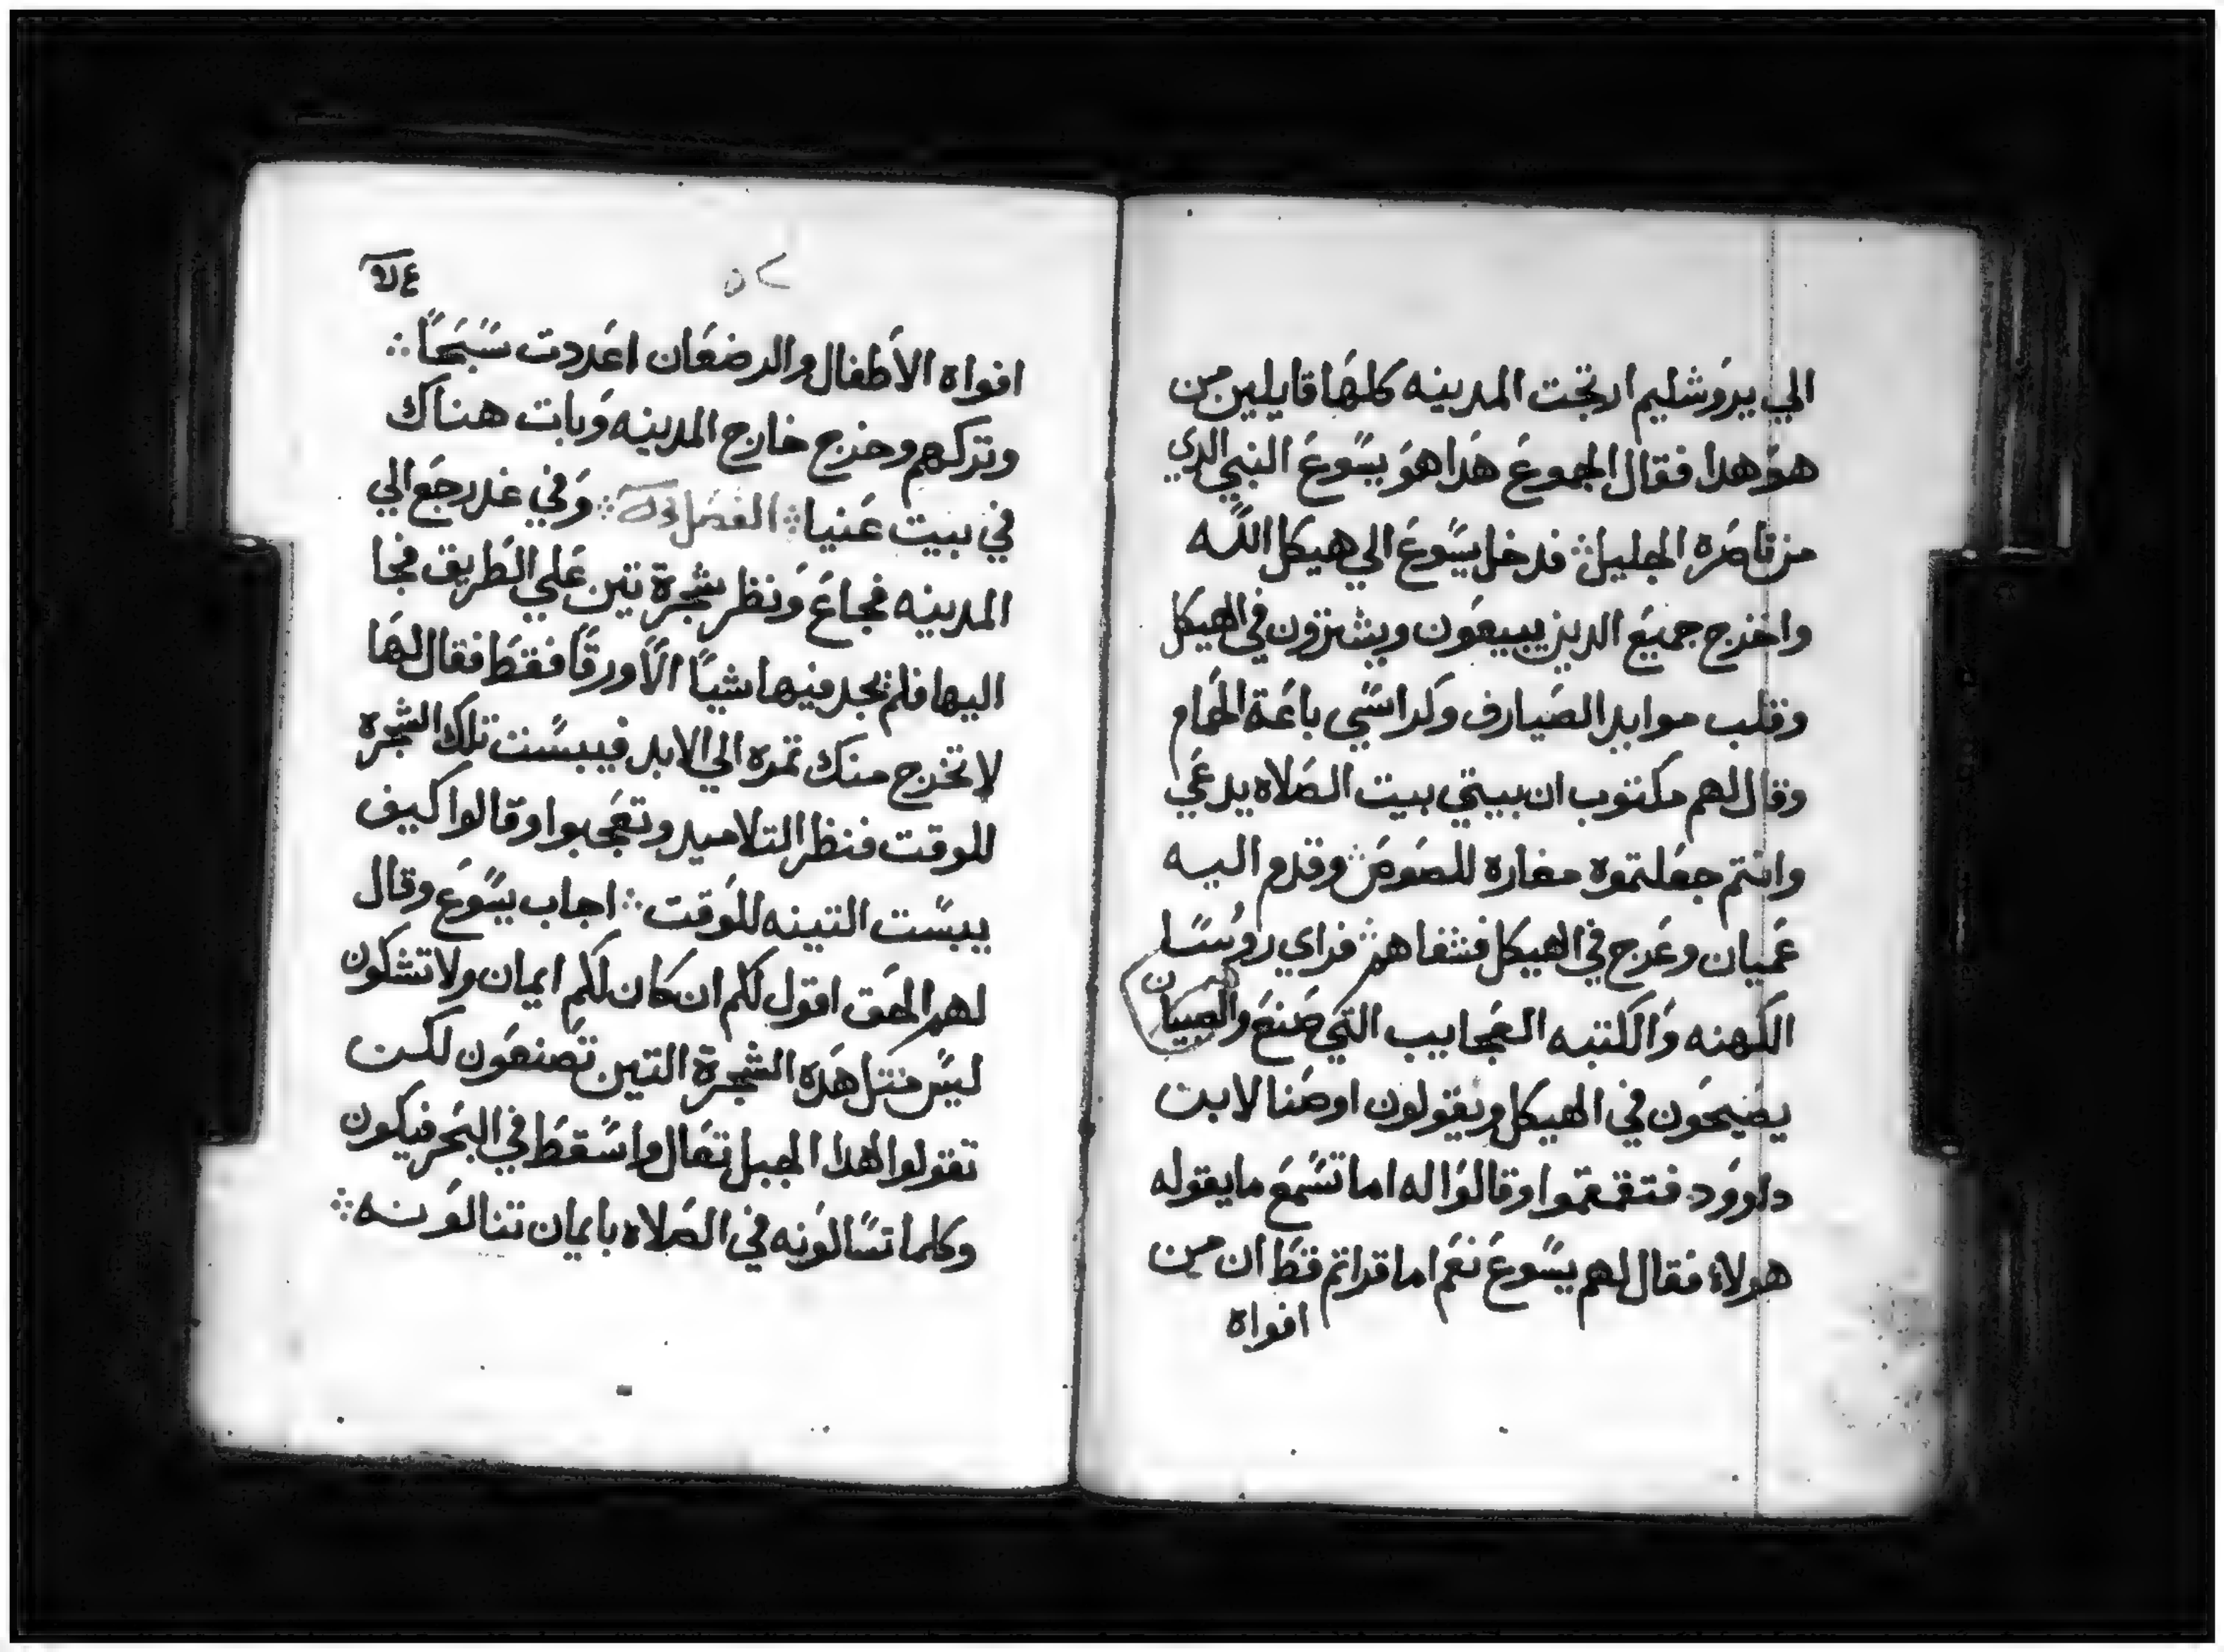 الي يروشليم ارتجت المدينه كلها قايلين من
هو هدا فقال الجموع هدا هو يسوع النبي الدي
من ناصرة الجليل ܀ فدخل يسوع الي هيكل الله
واخرج جميع الدين يبيعون ويشترون في الهيكل
وقلب موايد الصيارف وكراسي باعة الحمام
وقال لهم مكتوب ان بيتي بيت الصلاه يدعي
وانتم جعلتموه مغاره للصوص ܀ وقدم اليه
عميان وعرج في الهيكل فشفاهم ܀ فراي روسا
الكهنه والكتبه العجايب التي صنع والصبيان
يضيحون في الهيكل ويقولون اوصنا لابن
داوود فتقمقموا وقالوا له اما تسمع ما يقوله
هولاء فقال لهم يسوع نعم اما قراتم قط ان من
افواه
٥٢
افواه الاطفال والرضعان اعددت سبحا ܀
وتركهم وخرج خارج المدينه وبات هناك
في بيت عنيا ܀ الفصل ܀ وفي غد رجع الي
المدينه فجاع ونظر شجرة تين علي الطريق فجا
اليها فلم يجد فيها شيا الا ورقا فقط فقال لها
لا تخرج منك تمره الي الابد فيبست تلك الشجره
للوقت فنظر التلاميد وتعجبوا وقالوا كيف
يبست التينه للوقت ܀ اجاب يسوع وقال
لهم الحق اقول لكم ان كان لكم ايمان ولا تشكون
ليس متل هده الشجرة التين تصنعون لكن
تقولوا لهدا الجبل تعال واسقط في البحر فيكون
وكلما تسالونه في الصلاه بايمان تنالونه ܀